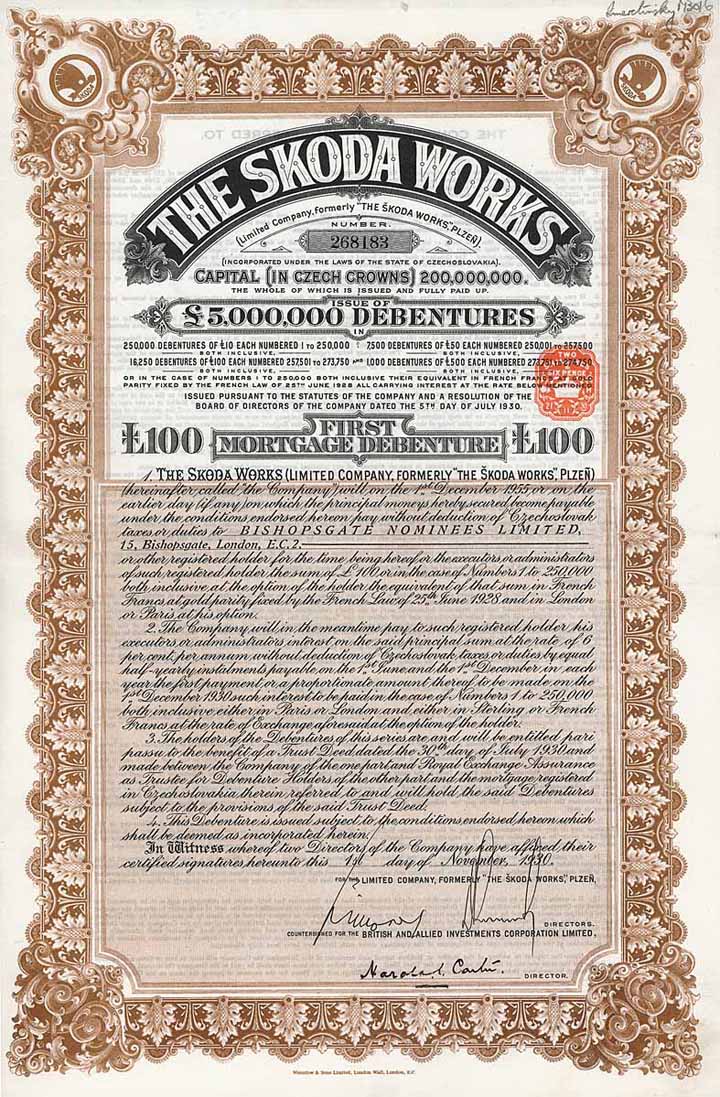 SKODA
SKODA
THE SKODA WORKS
(Limited Company, formerly "THE ŠKODA WORKS", PLZEŇ).
NUMBER.
268183
(INCORPORATED UNDER THE LAWS OF THE STATE OF CZECHOSLOVAKIA).
CAPITAL (IN CZECH CROWNS) 200,000,000.
THE WHOLE OF WHICH IS ISSUED AND FULLY PAID UP.
ISSUE OF
£5,000,000 DEBENTURES
IN
250,000 DEBENTURES OF £10 EACH NUMBERED 1 TO 250,000 : 7,500 DEBENTURES OF £50 EACH NUMBERED 250,001 TO 257,500
BOTH INCLUSIVE, BOTH INCLUSIVE,
16,250 DEBENTURES OF £100 EACH NUMBERED 257,501 TO 273,750 AND 1,000 DEBENTURES OF £500 EACH NUMBERED 273,751 TO 274,750
BOTH INCLUSIVE, BOTH INCLUSIVE,
OR IN THE CASE OF NUMBERS 1 TO 250,000 BOTH INCLUSIVE THEIR EQUIVALENT IN FRENCH FRANCS AT GOLD
PARITY FIXED BY THE FRENCH LAW OF 25TH JUNE 1928 ALL CARRYING INTEREST AT THE RATE BELOW MENTIONED.
TWO
SIX PENCE
ISSUED PURSUANT TO THE STATUTES OF THE COMPANY AND A RESOLUTION OF THE
BOARD OF DIRECTORS OF THE COMPANY DATED THE 5TH DAY OF JULY 1930.
£100 FIRST MORTGAGE DEBENTURE £100
1. THE SKODA WORKS (LIMITED COMPANY, FORMERLY "THE ŠKODA WORKS", PLZEŇ)
(hereinafter called "the Company") will on the 1st December 1955 or on the
earlier day (if any) on which the principal moneys hereby secured become payable
under the conditions endorsed hereon pay without deduction of Czechoslovak
taxes or duties to BISHOPSGATE NOMINEES LIMITED,
15, Bishopsgate, London, E.C.2.
or other registered holder for the time being hereof or the executors or administrators
of such registered holder the sum of £100 or in the case of Numbers 1 to 250,000
both inclusive at the option of the holder the equivalent of that sum in French
Francs at gold parity fixed by the French Law of 25th June 1928 and in London
or Paris at his option.
2. The Company will in the meantime pay to such registered holder his
executors or administrators interest on the said principal sum at the rate of 6
per cent. per annum without deduction of Czechoslovak taxes or duties by equal
half-yearly instalments payable on the 1st June and the 1st December in each
year the first payment or a proportionate amount thereof to be made on the
1st December 1930 such interest to be paid in the case of Numbers 1 to 250,000
both inclusive either in Paris or London and either in Sterling or French
Francs at the rate of Exchange aforesaid at the option of the holder.
3. The holders of the Debentures of this series are and will be entitled pari
passu to the benefit of a Trust Deed dated the 30th day of July 1930 and
made between the Company of the one part and Royal Exchange Assurance
as Trustee for Debenture Holders of the other part and the mortgage registered
in Czechoslovakia therein referred to and will hold the said Debentures
subject to the provisions of the said Trust Deed.
4. This Debenture is issued subject to the conditions endorsed hereon which
shall be deemed as incorporated herein.
In Witness whereof two Directors of the Company have affixed their
certified signatures hereunto this 1st day of November, 1930.
FOR THE LIMITED COMPANY, FORMERLY "THE ŠKODA WORKS", PLZEŇ,
DIRECTORS.
COUNTERSIGNED FOR THE BRITISH AND ALLIED INVESTMENTS CORPORATION LIMITED,
DIRECTOR.
Waterlow & Sons Limited, London Wall, London, E.C.